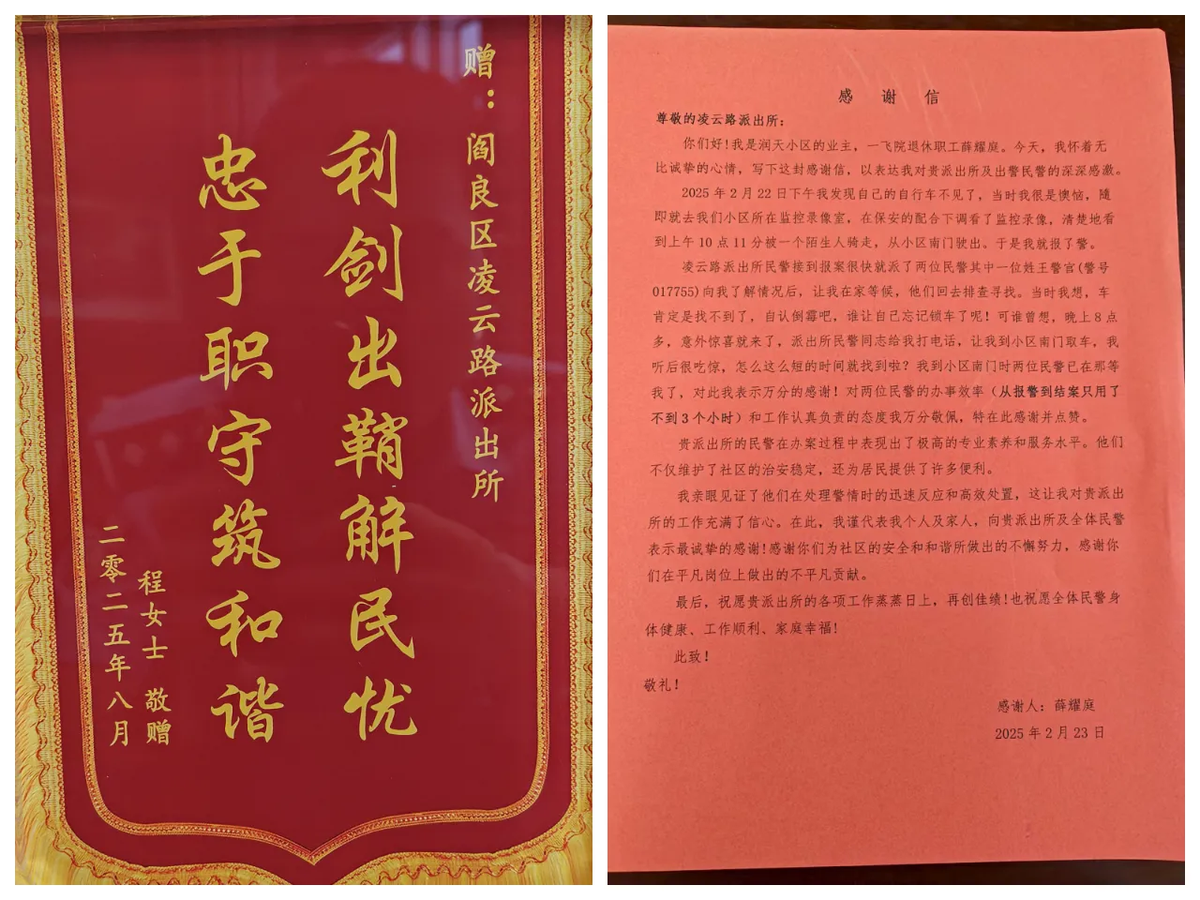 赠：阎良区凌云路派出所
利剑出鞘解民忧
忠于职守筑和谐
程女士 敬赠
二零二五年八月
感 谢 信
尊敬的凌云路派出所：
你们好！我是润天小区的业主，一飞院退休职工薛耀庭。今天，我怀着无
比诚挚的心情，写下这封感谢信，以表达我对贵派出所及出警民警的深深感激。
2025 年 2 月 22 日下午我发现自己的自行车不见了，当时我很是懊恼，随
即就去我们小区所在监控录像室，在保安的配合下调看了监控录像，清楚地看
到上午 10 点 11 分被一个陌生人骑走，从小区南门驶出。于是我就报了警。
凌云路派出所民警接到报案很快就派了两位民警其中一位姓王警官(警号
017755)向我了解情况后，让我在家等候，他们回去排查寻找。当时我想，车
肯定是找不到了，自认倒霉吧，谁让自己忘记锁车了呢！可谁曾想，晚上 8 点
多，意外惊喜就来了，派出所民警同志给我打电话，让我到小区南门取车，我
听后很吃惊，怎么这么短的时间就找到啦？我到小区南门时两位民警已在那等
我了，对此我表示万分的感谢！对两位民警的办事效率（从报警到结案只用了
不到 3 个小时）和工作认真负责的态度我万分敬佩，特在此感谢并点赞。
贵派出所的民警在办案过程中表现出了极高的专业素养和服务水平。他们
不仅维护了社区的治安稳定，还为居民提供了许多便利。
我亲眼见证了他们在处理警情时的迅速反应和高效处置，这让我对贵派出
所的工作充满了信心。在此，我谨代表我个人及家人，向贵派出所及全体民警
表示最诚挚的感谢！感谢你们为社区的安全和和谐所做出的不懈努力，感谢你
们在平凡岗位上做出的不平凡贡献。
最后，祝愿贵派出所的各项工作蒸蒸日上，再创佳绩！也祝愿全体民警身
体健康、工作顺利、家庭幸福！
此致！
敬礼！
感谢人：薛耀庭
2025 年 2 月 23 日